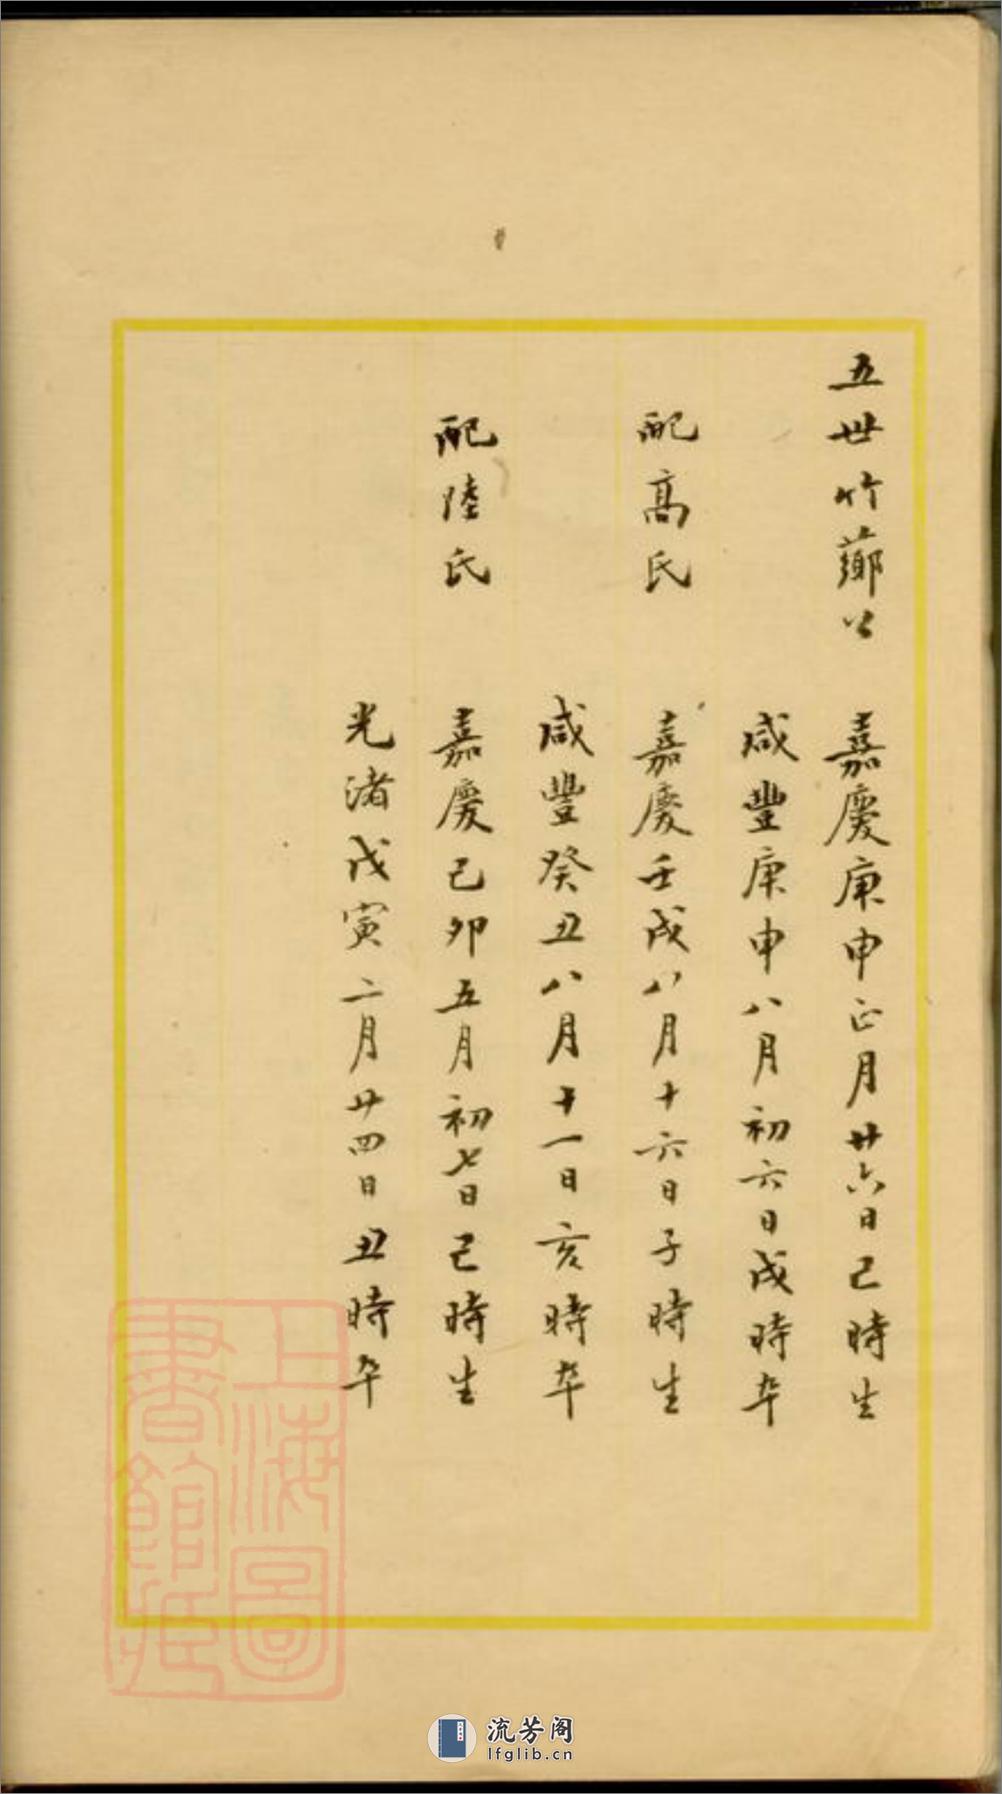 五世竹薌公 嘉慶庚申正月廿六日巳時生
咸豐庚申八月初六日戌時卒
配高氏 嘉慶壬戌八月十六日子時生
咸豐癸丑八月十一日亥時卒
配陸氏 嘉慶己卯五月初七日巳時生
光渚戊寅二月廿四日丑時卒
上海圖
書館藏
流芳阁
lfglib.cn